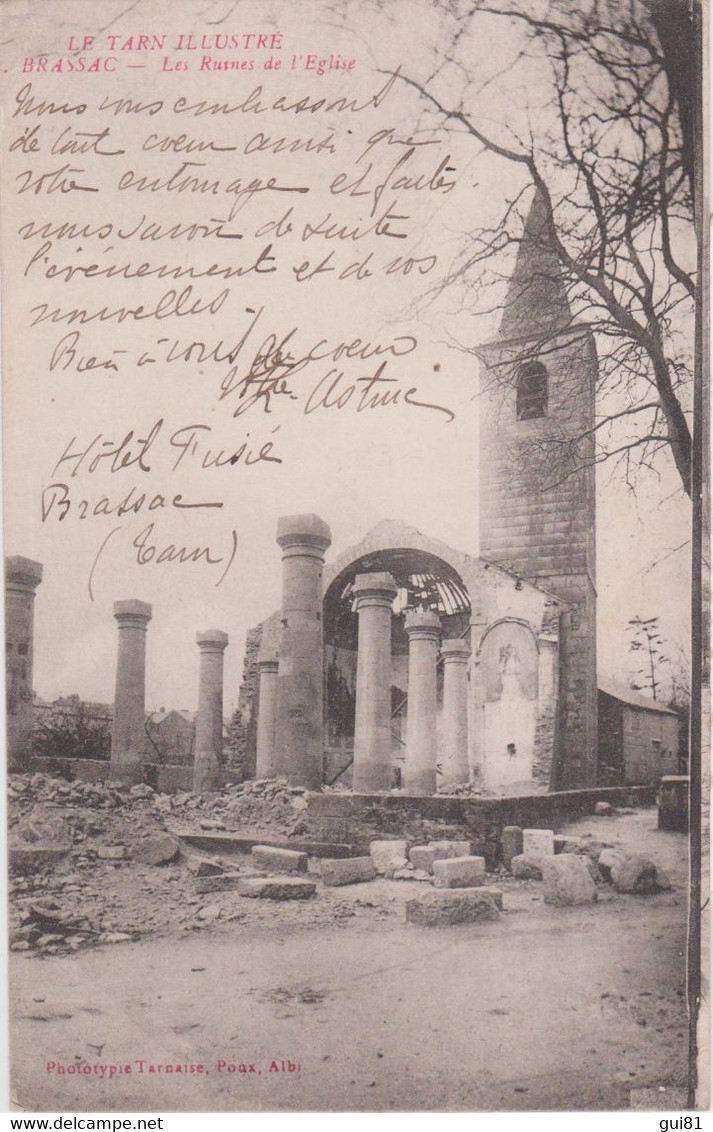 LE TARN ILLUSTRÉ
. BRASSAC — Les Ruines de l'Eglise
Nous vous embrassons
de tout coeur ainsi que
votre entourage et faites
nous savoir de suite
l'événement et de vos
nouvelles -
Bien à vous de coeur
Astruc
Hôtel Fusié
Brassac
(Tarn)
Phototypie Tarnaise, Poux, Albi
gui81